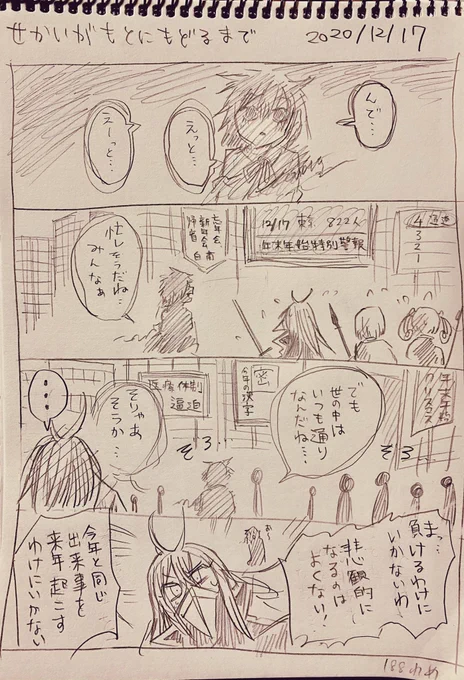 せかいがもとにもどるまで
2020/12/17
んで…
えっと…
えーっと…
4 3 2 1
12/17 東京 822人
年末年始特別警報
忘年会、
新年会、
帰省 自粛
忙しそうだね…
みんなぁ
年末年始
クリスマス
でも
世の中は
いつも通り
なんだね…
密
今年の漢字
医療体制
逼迫
そりゃあ
そうか…
…
ぞろ
ぞろ
まっ…
負けるわけに
いかないわ
悲観的に
なるのは
よくない!
今年と同じ
出来事を
来年起こす
わけにいかない